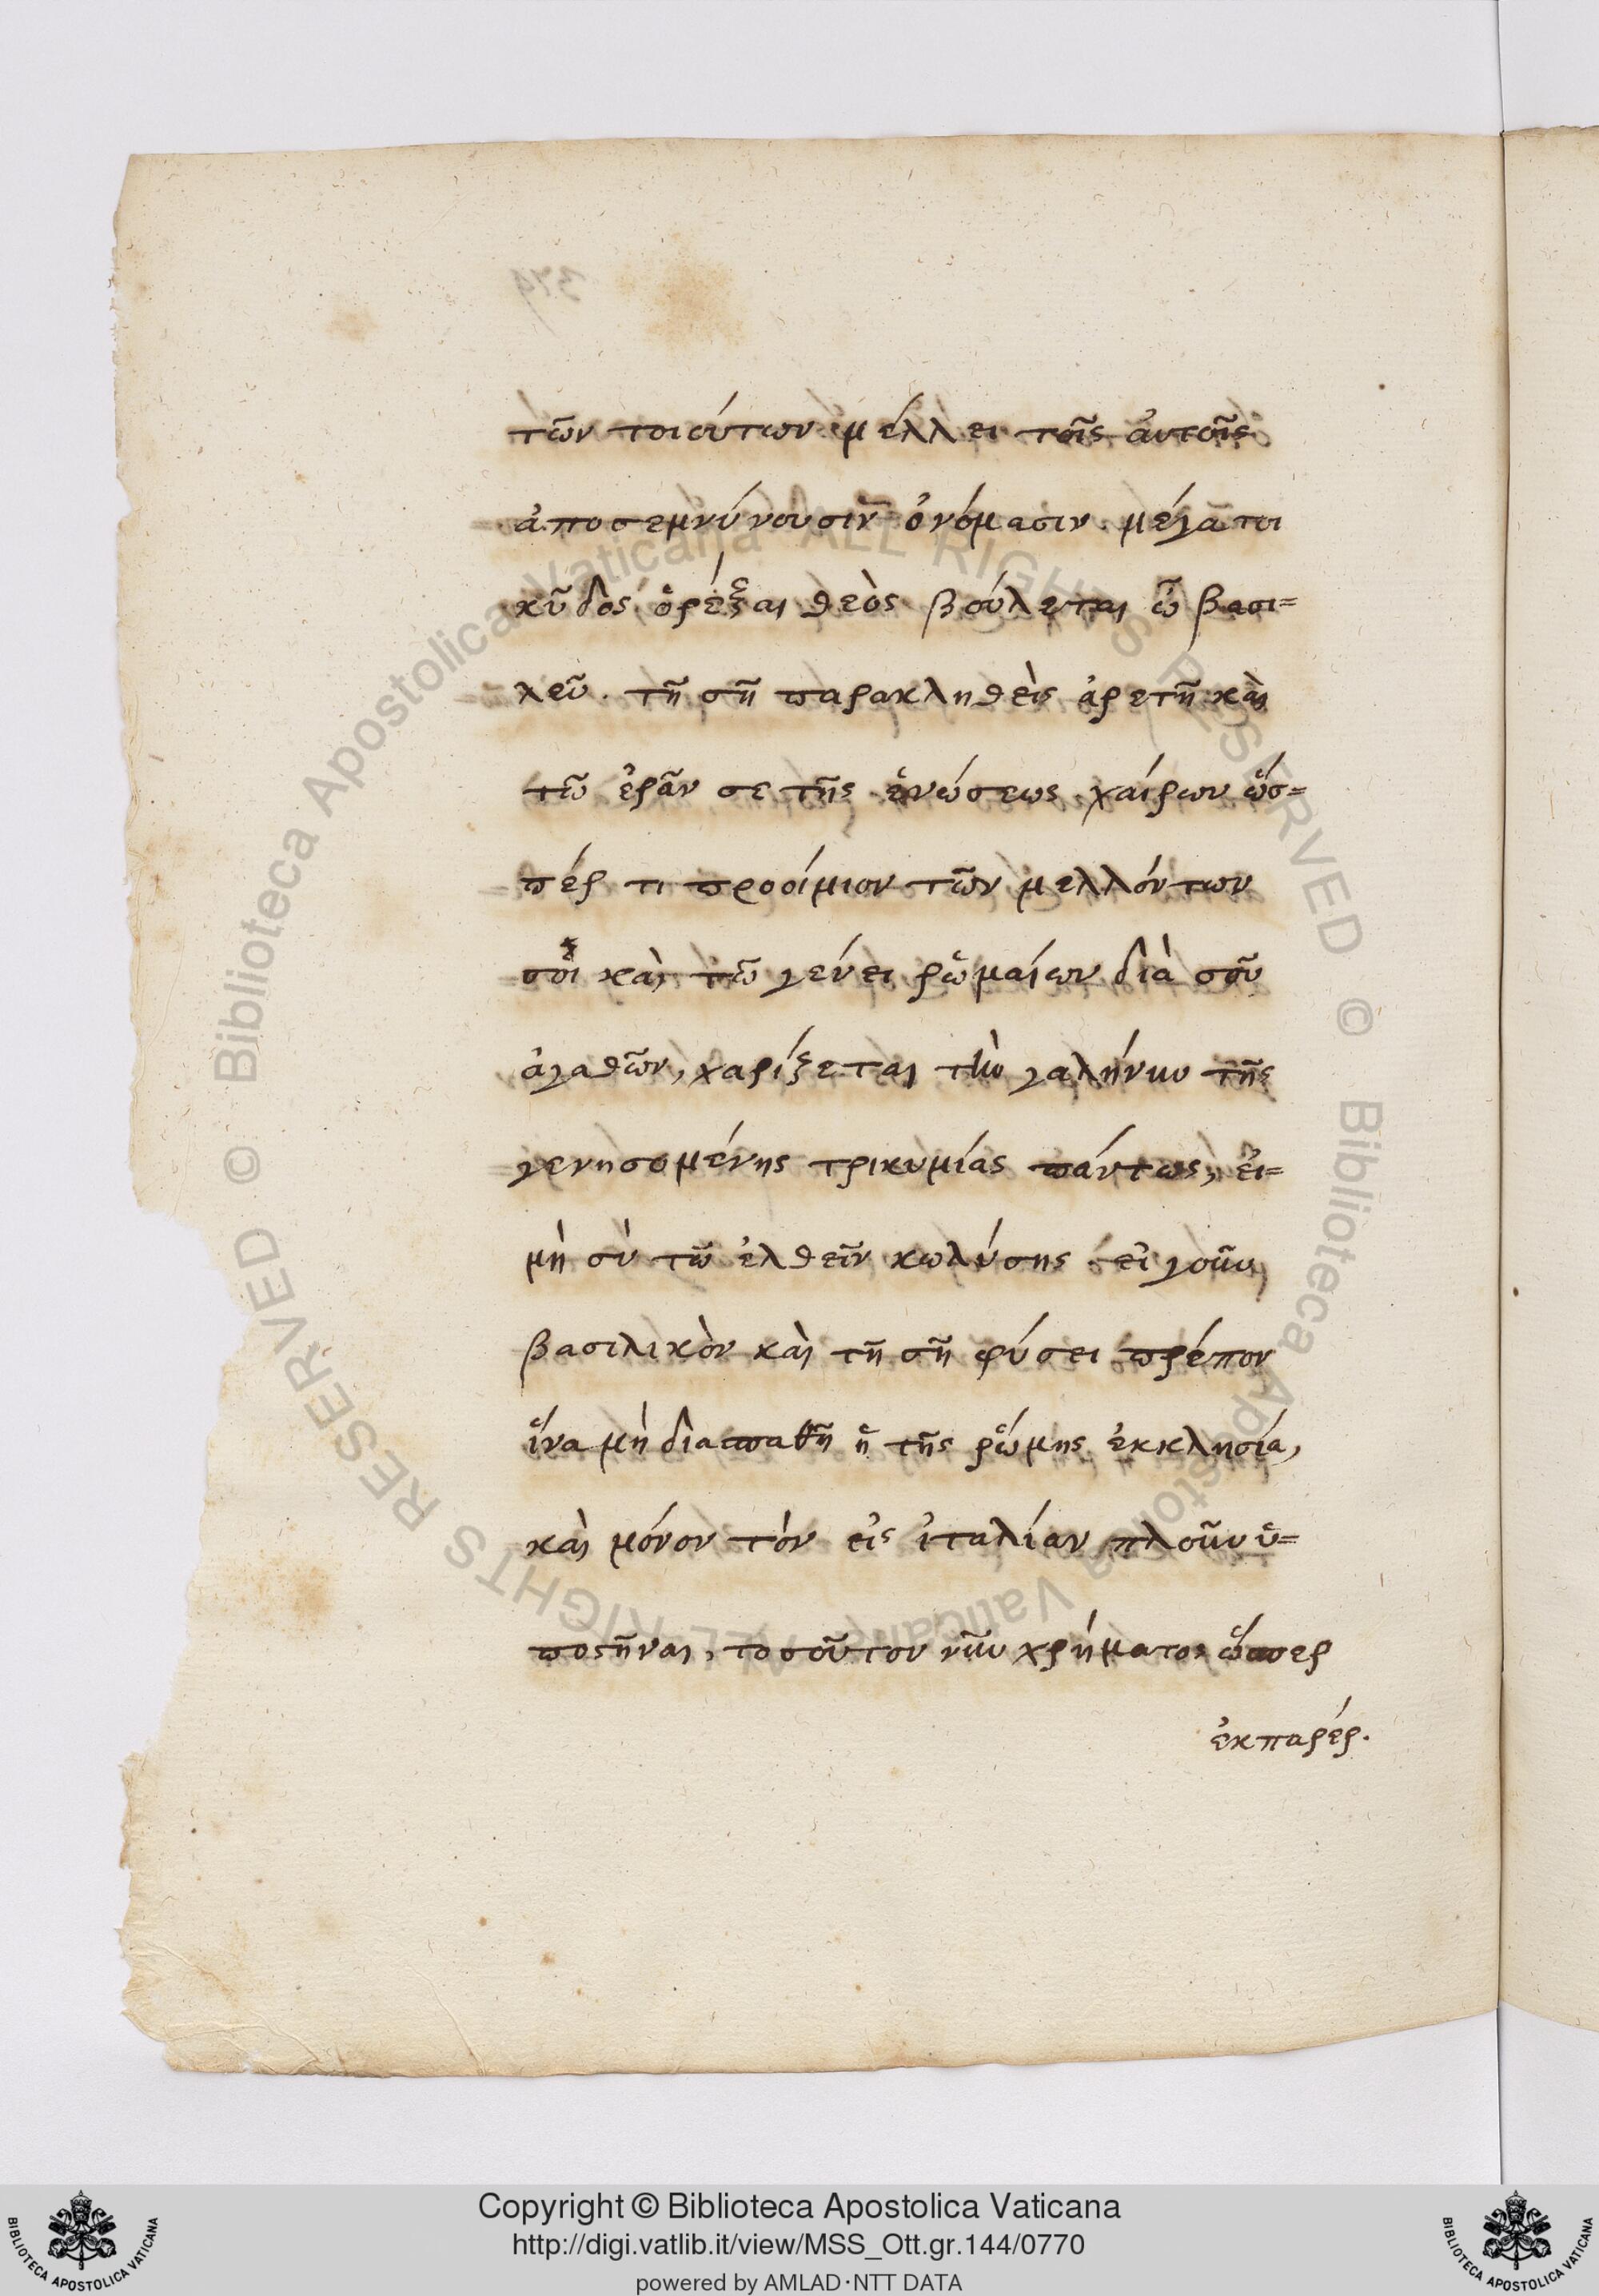 τῶν τοιούτων μέλλει τοῖς ἀυτοῖς
ἀποσεμνύνουσιν ὀνόμασιν. μέγα τοι
κῦδος ὀρέξαι θεὸς βούλεται ὦ βασι=
λεῦ. τῇ σῇ παρακληθεὶς ἀρετῇ καὶ
τῶ ἐρᾶν σε τῆς ἑνώσεως. χαίρων ὥσ=
πέρ τι προοίμιον τῶν μελλόντων
σοὶ καὶ τῶ γένει ῥωμαίων διὰ σοῦ
ἀγαθῶν, χαρίζεται τὴν γαλήνην τῆς
γενησομένης τρικυμίας πάντως, εἰ=
μὴ σὺ τῶ ἐλθεῖν κωλύσης. εἰ γοῦν
βασιλικὸν καὶ τῇ σῇ φύσει πρέπον
ἵνα μὴ διαπαυθῇ ἡ τῆς ῥώμης ἐκκλησία,
καὶ μόνον τὸν εἰς ἰταλίαν πλοῦν ὑ=
ποστῆναι, τοσοῦτον νῦν χρήματος ὥσπερ
ἐκπαρέρ.
Copyright © Biblioteca Apostolica Vaticana
http://digi.vatlib.it/view/MSS_Ott.gr.144/0770
powered by AMLAD·NTT DATA
© Biblioteca Apostolica Vaticana ALL RIGHTS RESERVED
© Biblioteca Apostolica Vaticana ALL RIGHTS RESERVED
BIBLIOTECA APOSTOLICA VATICANA
BIBLIOTECA APOSTOLICA VATICANA